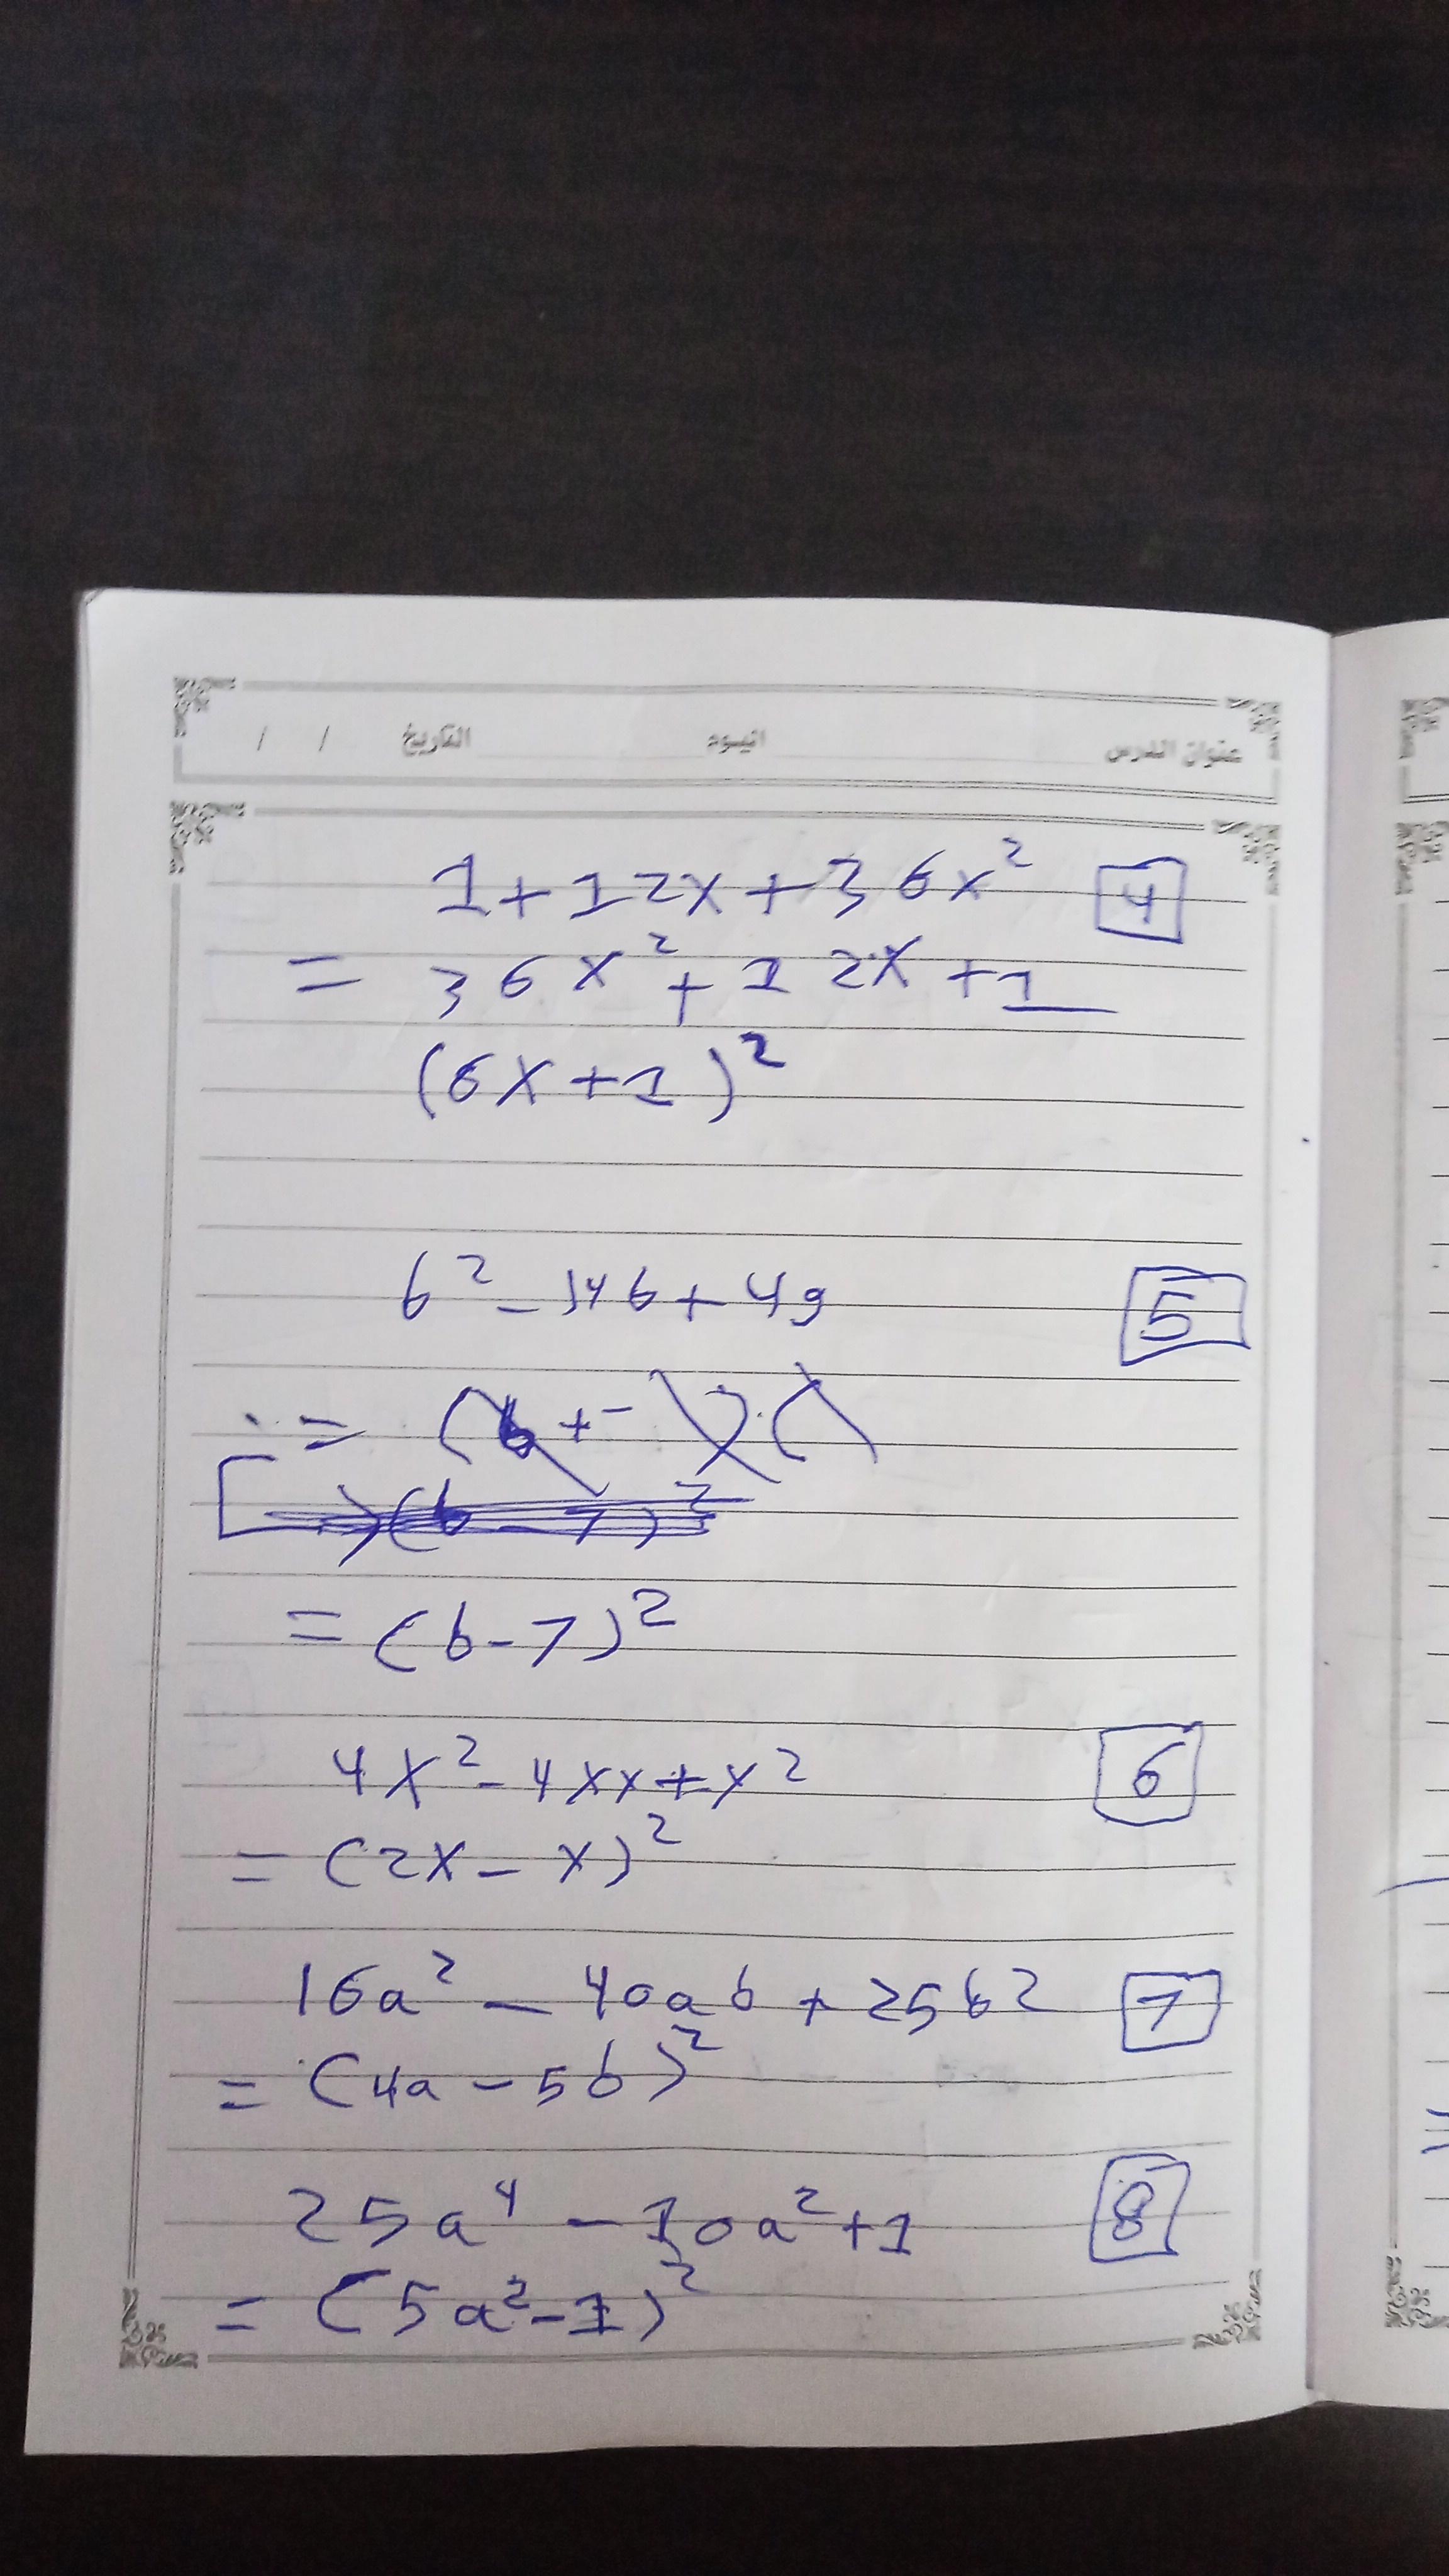 عنوان الدرس اليوم التاريخ / /
1+12x+36x² 4
= 36x²+12x+1
(6x+1)²
b²-14b+49 5
= (b-7)²
4x²-4xy+y² 6
= (2x-y)²
16a²-40ab+25b2 7
= (4a-5b)²
25a⁴-10a²+1 8
= (5a²-1)²